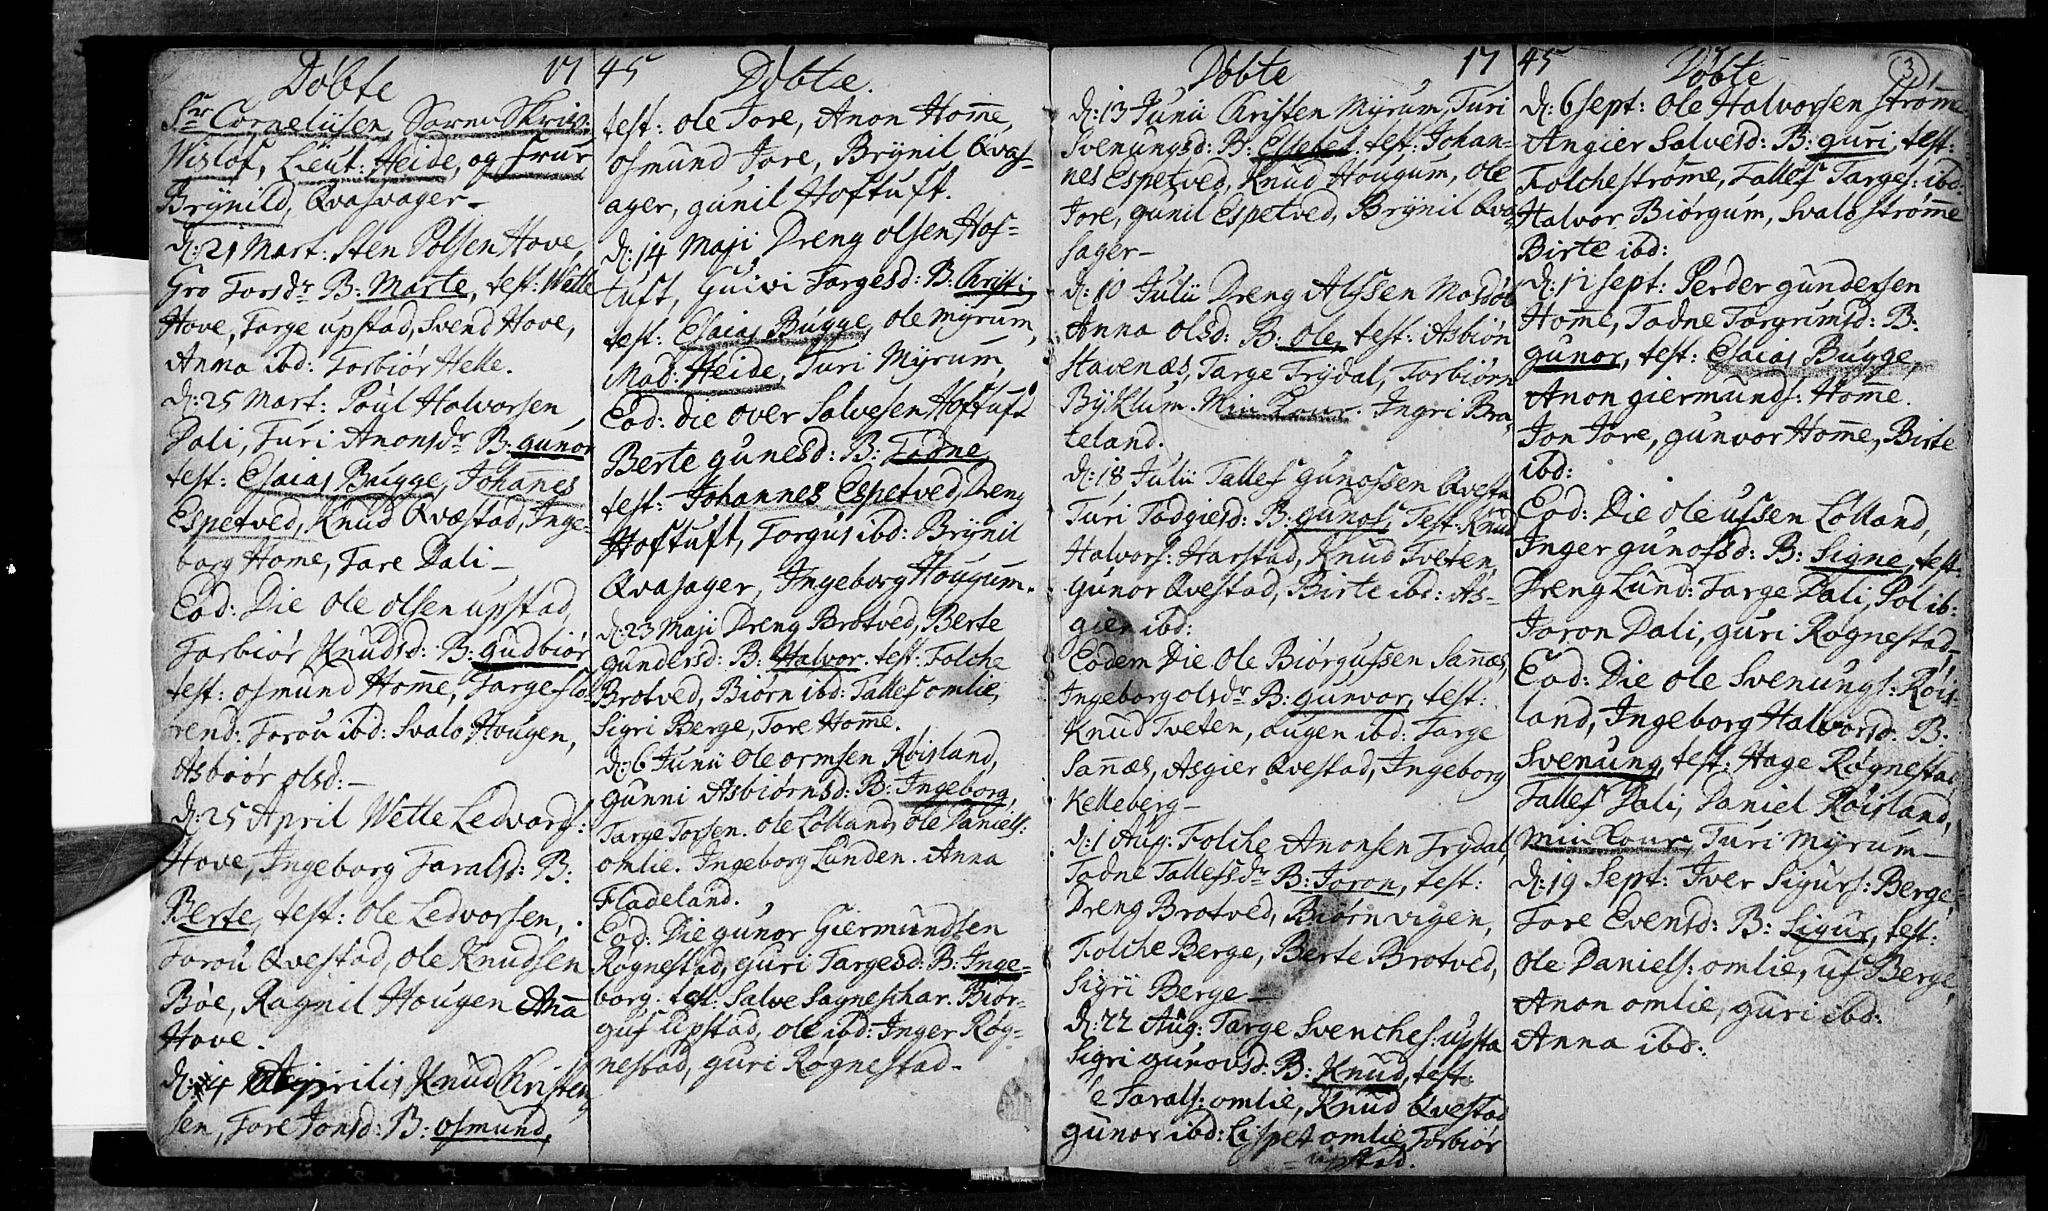 Døbte 17
Sr: Corneliisen, Søren Skriv:
Wisløf, Lieut: Heide, og frur
Brÿnild, Qvasvager-
d: 21 Mart: Sten Polsen Hove,
Gro Torsdr B: Marte, test: Wetle
Hove, Targe upstad, Svend Hove,
Anna ibd: Torbiør Helle.
d: 25 Mart: Poul Halvorsen
Dali, Turi Anonsdr B: gunor
test: Esaias Bugge, Johanes
Espetved, Knud Qvæstad, Inge-
borg Home, Tare Dali-
Eod: Die Ole olsen upstad
Torbiør Knudsd: B: gudbiør
test: osmund Home, Targe flo-
rend: Torou ibd: Svalo Hougen,
Asbiør olsd:-
d: 25 April Wetle Ledvors:
Hove, Ingeborg Taralsd: B:
Berte, test: Ole Ledvorsen,
Torou Qvestad, Ole Knudsen
Bøe, Ragnil Hougen Ana
Hove.
d: 4 Aprilis Knud Christen
sen, Tore Jonsd: B: osmund,
45 Døbte.
test: ole Jore, Anon Home,
osmund Jore, Brÿnil Qvas-
ager, gunil Hoftuft.
d: 14 Maji Dreng olsen Hof-
tuft, Guivi Targesd: B: Christi,
test: Esaias Bugge, ole mÿrum,
Mad: Heide, Turi Mÿrum,
Eod: die over Salvesen Hoftuft
Berte gunesd: B: Tadne
test: Johannes Espetved, Dreng
Hoftuft, Torgus ibd: Brÿnil
Qvasager, Ingeborg Hougum.
d: 23 Maji Dreng Brotved, Berte
gundersd: B: Halvor. test: Folche
Brotved, Biørn ibd: Tallef omlie,
Sigri Berge, Tore Home.
d: 6 Junii Ole ormsen Røisland,
gunni Asbiørnsd: B: Ingeborg,
Targe Torsen. Ole Lolland, Ole Daniels:
omlie. Ingeborg Lunden. Anna
Fladeland.
Eod: Die gunor Giermundsen
Rognestad, guri Targesd: B: Inge-
borg. test: Salve Sagneskar. Biør-
guf upstad, ole ibd: Inger Røg-
nestad, guri Rognestad-
Døbte 17
d: 13 Junii Christen Mÿrum, Turi
Svenungsd: B: Elsebet. test: Johan-
nes Espetved, Knud Hougum, Ole
Jore, gunil Espetved, Brÿnil Qva-
sager-
d: 10 Julii Dreng Alfsen
Anna olsd: B: Ole, test: Asbiøn
Stavenæs, Targe Trÿdal, Torbiørn
Bÿklum. Min Kour. Ingri Bra-
teland.
d: 18 Julii Tallef gunofsen Qvesta
Turi Tadgiersd: B: gunof, Test: Knud
Halvors: Harstad, Knud Tveten,
gunor Qvestad, Birte ibd: As-
gier ibd:
Eodem Die Ole Biørgufsen Sanæs,
Ingeborg olsdr B: gunvor, test:
Knud Tveten, ougen ibd: Targe
Sanæs, Asgier Qvestad, Ingeborg
Kelleberg-
d: 1 Aug: Folche Anonsen Trÿdal,
Tadne Tallefsdr B: Joron, test:
Dreng Brotved, Biørn vigen,
Folche Berge, Berte Brotved,
Sigri Berge-
d: 22 Aug: Targe Svenches: upsta
Sigri gunovsd: B: Knud, test:
e Tarals: omlie, Knud Qvestad
gunor ibd: Lispet omlie, Torbiør
upstad.
45 Døbte 3
d: 6 sept: Ole Halvorsen strøme
Angier Salvesd: B: guri, test:
Folche strøme, Tallef Targes: ibd:
Halvor Biørgum, Svalo strøme
Birte ibd:
d: 12 sept: Perder gundersen
Home, Tadne Torgrimsd: B:
gunor, test: Esaias Bugge,
Anon giermunds: Home.
Jon Jore, gunvor Home, Birte
ibd:
Eod: Die ole ufsen Lolland,
Inger gunofsd: B: Signe, test:
Dreng Lund: Targe Dali, Pol ib:
Joron Dali, guri Rognestad-
Eod: Die Ole Svenungs: Røis-
land, Ingeborg Halvorsd: B:
Svenung, test: Hage Røgnestad
Tallef Dali, Daniel Røisland,
Min Kour, Turi Mÿrum-
d: 19 Sept: Iver Sigurs: Berge,
Tore Evensd: B: Sigur, test:
Ole Daniels: omlie, uf Berge,
Anon omlie, guri ibd:
Anna ibd: